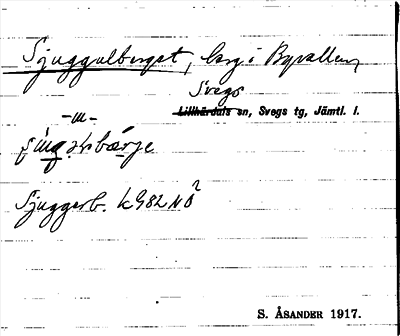 Sjuggulberget, berg i Byvallen
Svegs
Lillhärdals sn, Svegs tg, Jämtl. l.
-u-
Sjuggerb. kg82 NO²
S. ÅSANDER 1917.